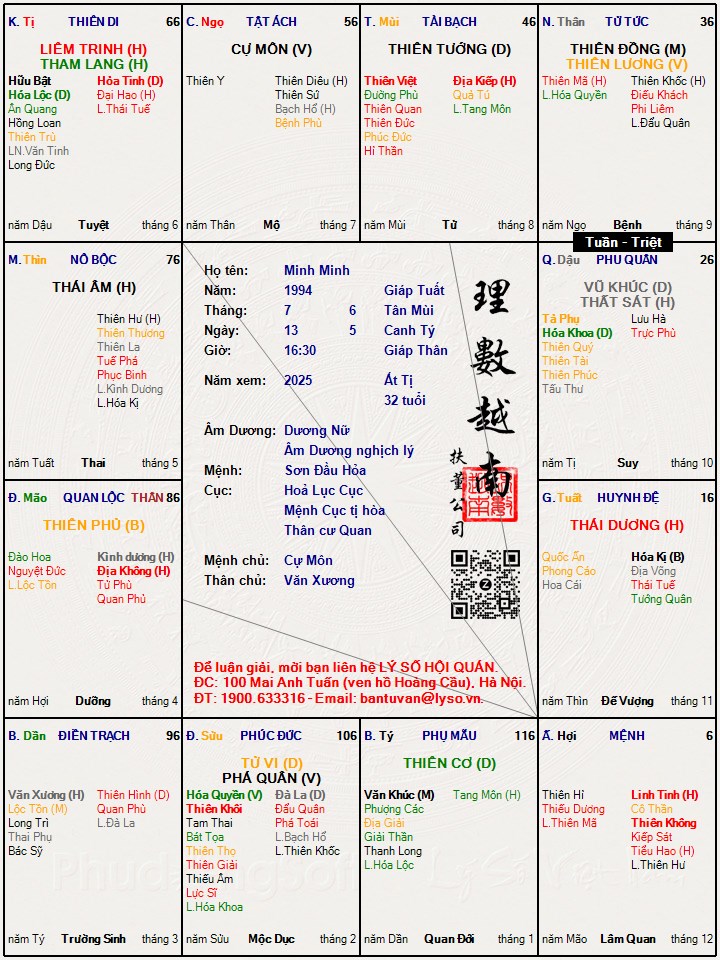 K. Tị THIÊN DI 66
LIÊM TRINH (H)
THAM LANG (H)
Hữu Bật Hỏa Tinh (D)
Hóa Lộc (D) Đại Hao (H)
Ân Quang L.Thái Tuế
Hồng Loan
Thiên Trù
LN.Văn Tinh
Long Đức
năm Dậu Tuyệt tháng 6
C. Ngọ TẬT ÁCH 56
CỰ MÔN (V)
Thiên Y Thiên Diêu (H)
Thiên Sứ
Bạch Hổ (H)
Bệnh Phù
năm Thân Mộ tháng 7
T. Mùi TÀI BẠCH 46
THIÊN TƯỚNG (D)
Thiên Việt Địa Kiếp (H)
Đường Phù Quả Tú
Thiên Quan L.Tang Môn
Thiên Đức
Phúc Đức
Hỉ Thần
năm Mùi Tử tháng 8
N. Thân TỬ TỨC 36
THIÊN ĐỒNG (M)
THIÊN LƯƠNG (V)
Thiên Mã (H) Thiên Khốc (H)
L.Hóa Quyền Điếu Khách
Phi Liêm
L.Đẩu Quân
năm Ngọ Bệnh tháng 9
Tuần - Triệt
M. Thìn NÔ BỘC 76
THÁI ÂM (H)
Thiên Hư (H)
Thiên Thương
Thiên La
Tuế Phá
Phục Binh
L.Kình Dương
L.Hóa Kị
năm Tuất Thai tháng 5
Họ tên: Minh Minh
Năm: 1994 Giáp Tuất
Tháng: 7 6 Tân Mùi
Ngày: 13 5 Canh Tý
Giờ: 16:30 Giáp Thân
Năm xem: 2025 Ất Tị
32 tuổi
Âm Dương: Dương Nữ
Âm Dương nghịch lý
Mệnh: Sơn Đầu Hỏa
Cục: Hoả Lục Cục
Mệnh Cục tị hòa
Thân cư Quan
Mệnh chủ: Cự Môn
Thân chủ: Văn Xương
理數越南
扶董公司
Để luận giải, mời bạn liên hệ LÝ SỐ HỘI QUÁN.
ĐC: 100 Mai Anh Tuấn (ven hồ Hoàng Cầu), Hà Nội.
ĐT: 1900.633316 - Email: bantuvan@lyso.vn.
Q. Dậu PHU QUÂN 26
VŨ KHÚC (D)
THẤT SÁT (H)
Tả Phụ Lưu Hà
Hóa Khoa (D) Trực Phù
Thiên Quý
Thiên Tài
Thiên Phúc
Tấu Thư
năm Tị Suy tháng 10
Đ. Mão QUAN LỘC THÂN 86
THIÊN PHỦ (B)
Đào Hoa Kình dương (H)
Nguyệt Đức Địa Không (H)
L.Lộc Tồn Tử Phù
Quan Phủ
năm Hợi Dưỡng tháng 4
G. Tuất HUYNH ĐỆ 16
THÁI DƯƠNG (H)
Quốc Ấn Hóa Kị (B)
Phong Cáo Địa Võng
Hoa Cái Thái Tuế
Tướng Quân
năm Thìn Đế Vượng tháng 11
B. Dần ĐIỀN TRẠCH 96
Văn Xương (H) Thiên Hình (D)
Lộc Tồn (M) Quan Phù
Long Trì L.Đà La
Thai Phụ
Bác Sỹ
năm Tý Trường Sinh tháng 3
Đ. Sửu PHÚC ĐỨC 106
TỬ VI (D)
PHÁ QUÂN (V)
Hóa Quyền (V) Đà La (D)
Thiên Khôi Đẩu Quân
Tam Thai Phá Toái
Bát Tọa L.Bạch Hổ
Thiên Thọ L.Thiên Khốc
Thiên Giải
Thiếu Âm
Lực Sĩ
L.Hóa Khoa
năm Sửu Mộc Dục tháng 2
B. Tý PHỤ MẪU 116
THIÊN CƠ (D)
Văn Khúc (M) Tang Môn (H)
Phượng Các
Địa Giải
Giải Thần
Thanh Long
L.Hóa Lộc
năm Dần Quan Đới tháng 1
Ấ. Hợi MỆNH 6
Thiên Hỉ Linh Tinh (H)
Thiếu Dương Cô Thần
L.Thiên Mã Thiên Không
Kiếp Sát
Tiểu Hao (H)
L.Thiên Hư
năm Mão Lâm Quan tháng 12